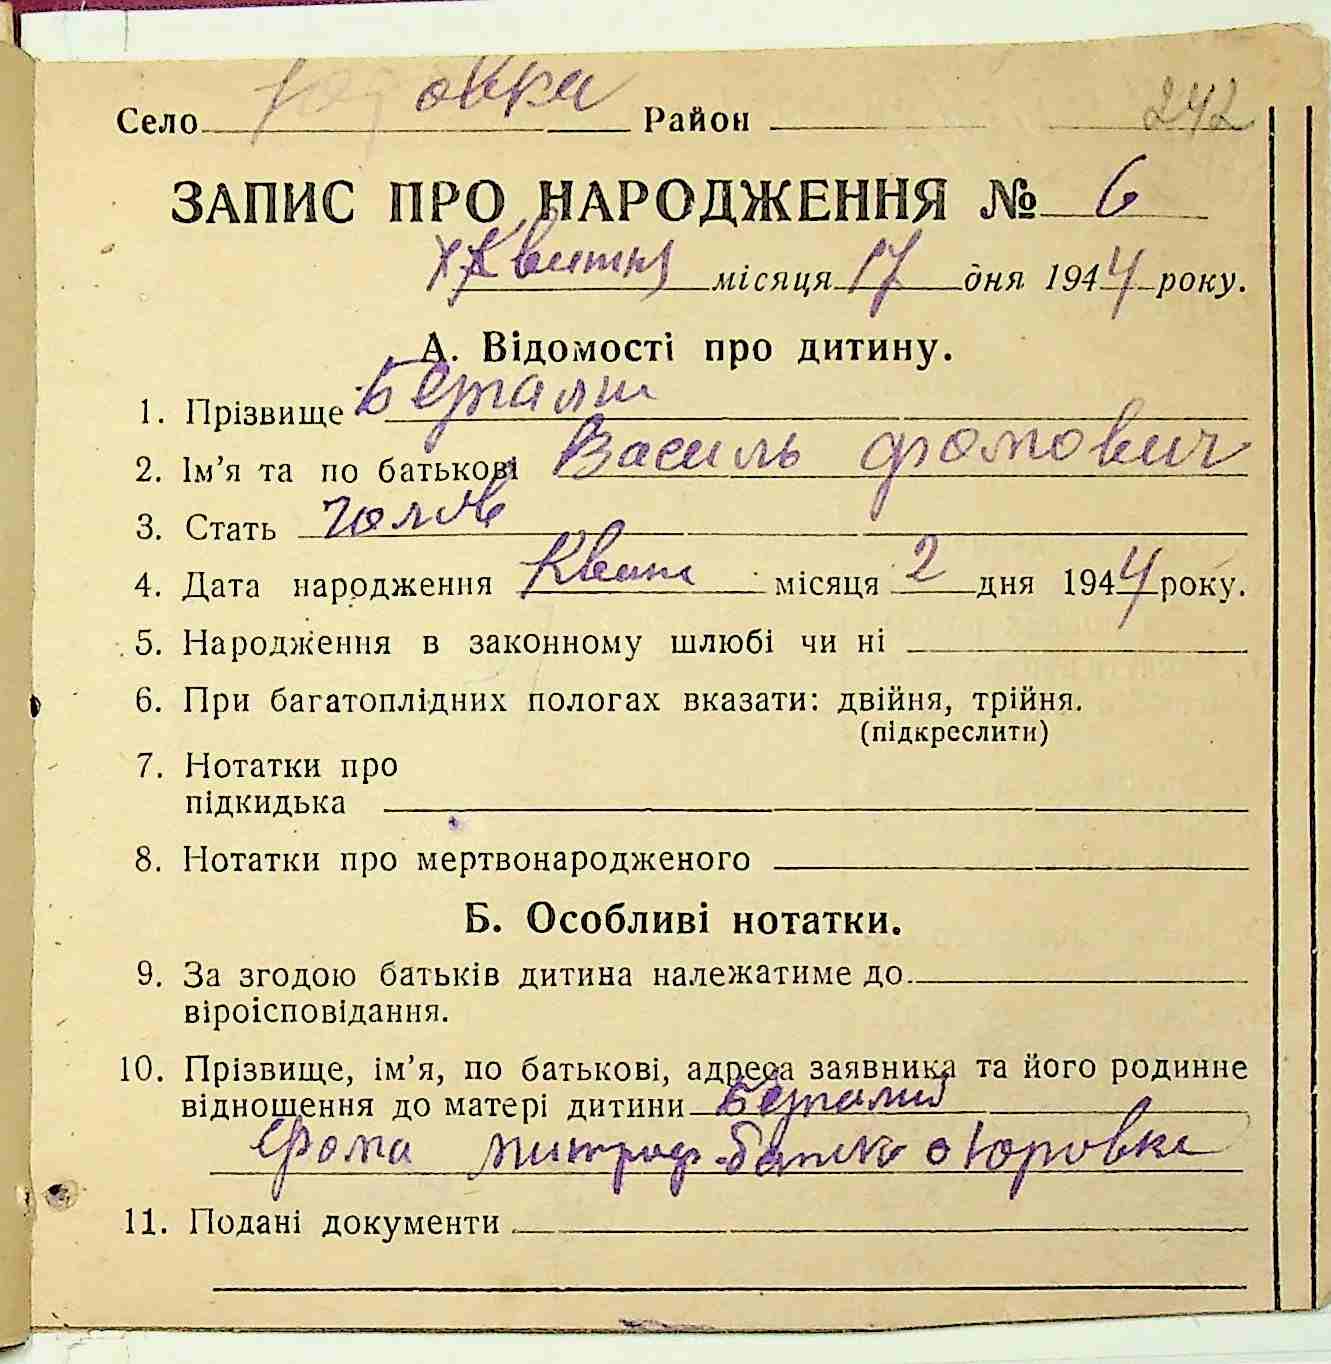 Село Юровка Район 242
ЗАПИС ПРО НАРОДЖЕННЯ № 6
Квитня місяця 17 дня 1944 року.
А. Відомості про дитину.
1. Прізвище
2. Ім’я та по батькові Василь Фомович
3. Стать чолов
4. Дата народження Квит місяця 2 дня 1944 року.
5. Народження в законному шлюбі чи ні
6. При багатоплідних пологах вказати: двійня, трійня.
(підкреслити)
7. Нотатки про
підкидька
8. Нотатки про мертвонародженого
Б. Особливі нотатки.
9. За згодою батьків дитина належатиме до
віроісповідання.
10. Прізвище, ім’я, по батькові, адреса заявника та його родинне
відношення до матері дитини
Фома Митроф. батько Юровка
11. Подані документи